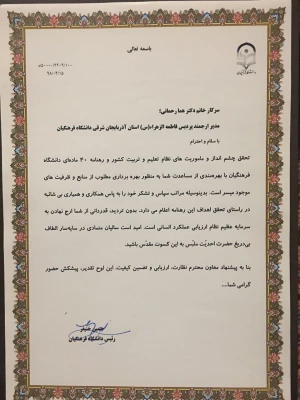 باسمه تعالی
۵۰۰۰۰/۲۴۰۹/۱۰۰
۹۸/۰۲/۱۵
سرکار خانم دکتر هما رحمانی؛
مدیر ارجمند پردیس فاطمه الزهرا(س) استان آذربایجان شرقی دانشگاه فرهنگیان
با سلام و احترام
تحقق چشم انداز و ماموریت های نظام تعلیم و تربیت کشور و رهنامه ۴۰ ماده‌ای دانشگاه
فرهنگیان با بهره‌مندی از مساعدت شما به منظور بهره برداری مطلوب از منابع و ظرفیت های
موجود میسر است. بدینوسیله مراتب سپاس و تشکر خود را به پاس همکاری و همیاری بی شائبه
در راستای تحقق اهداف این رهنامه اعلام می دارد. بدون تردید، قدردانی از شما ارج نهادن به
سرمایه عظیم نظام ارزیابی عملکرد انسانی است. امید است سالیان متمادی در سایه‌سار الطاف
بی‌دریغ حضرت احدیّت ملبّس به این کسوت مقدّس باشید.
بنا به پیشنهاد معاون محترم نظارت، ارزیابی و تضمین کیفیت، این لوح تقدیر، پیشکش حضور
گرامی شما...
رئیس دانشگاه فرهنگیان